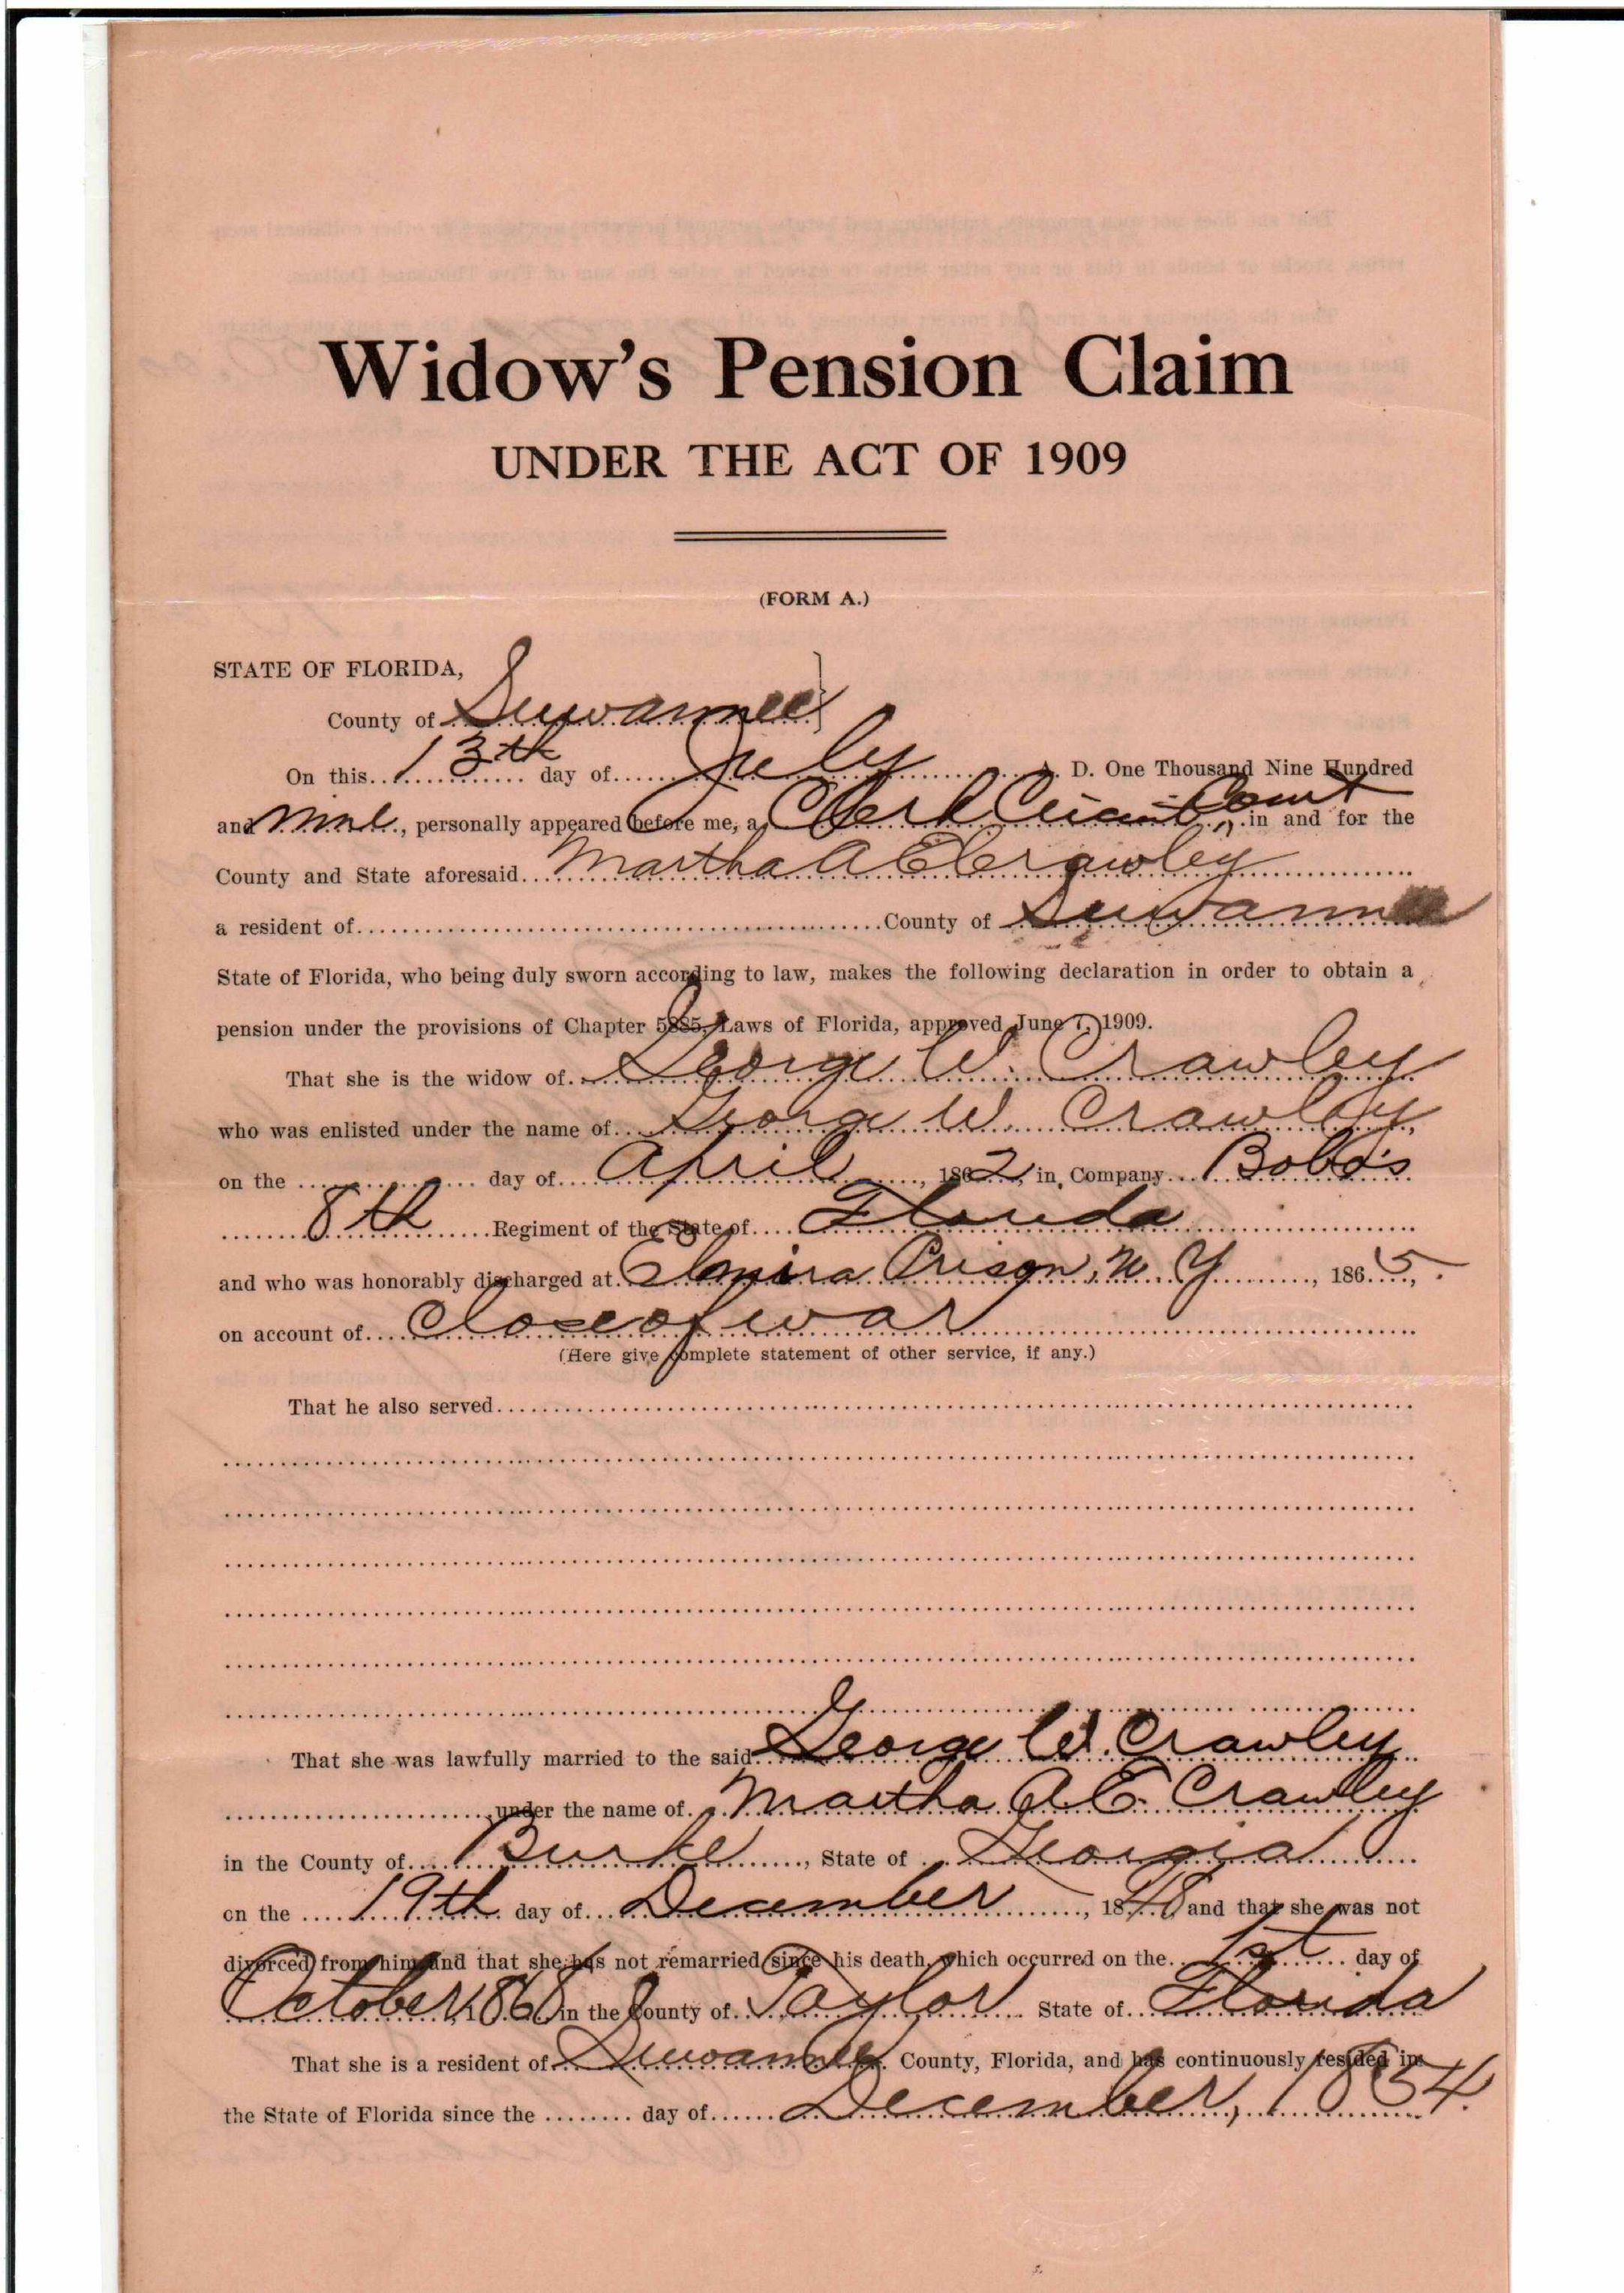 Widow's Pension Claim
UNDER THE ACT OF 1909
(FORM A.)
STATE OF FLORIDA,
County of Suwannee
On this 13th day of July D. One Thousand Nine Hundred
and nine, personally appeared before me, a Clerk Circuit Court in and for the
County and State aforesaid Martha A E Crawley
a resident of County of Suwannee
State of Florida, who being duly sworn according to law, makes the following declaration in order to obtain a
pension under the provisions of Chapter 5885, Laws of Florida, approved June 7, 1909.
That she is the widow of George W. Crawley
who was enlisted under the name of George W. Crawley,
on the day of April, 1862, in Company Bobo's
8th Regiment of the State of Florida
and who was honorably discharged at Elmira Prison, N. Y, 1865,
on account of Close of war
(Here give complete statement of other service, if any.)
That he also served
That she was lawfully married to the said George W. Crawley
under the name of Martha A. E. Crawley
in the County of Burke, State of Georgia
on the 19th day of December, 1848 and that she was not
divorced from him and that she has not remarried since his death, which occurred on the 1st day of
October, 1868 in the County of Taylor State of Florida
That she is a resident of Suwannee County, Florida, and has continuously resided in
the State of Florida since the day of December, 1854.